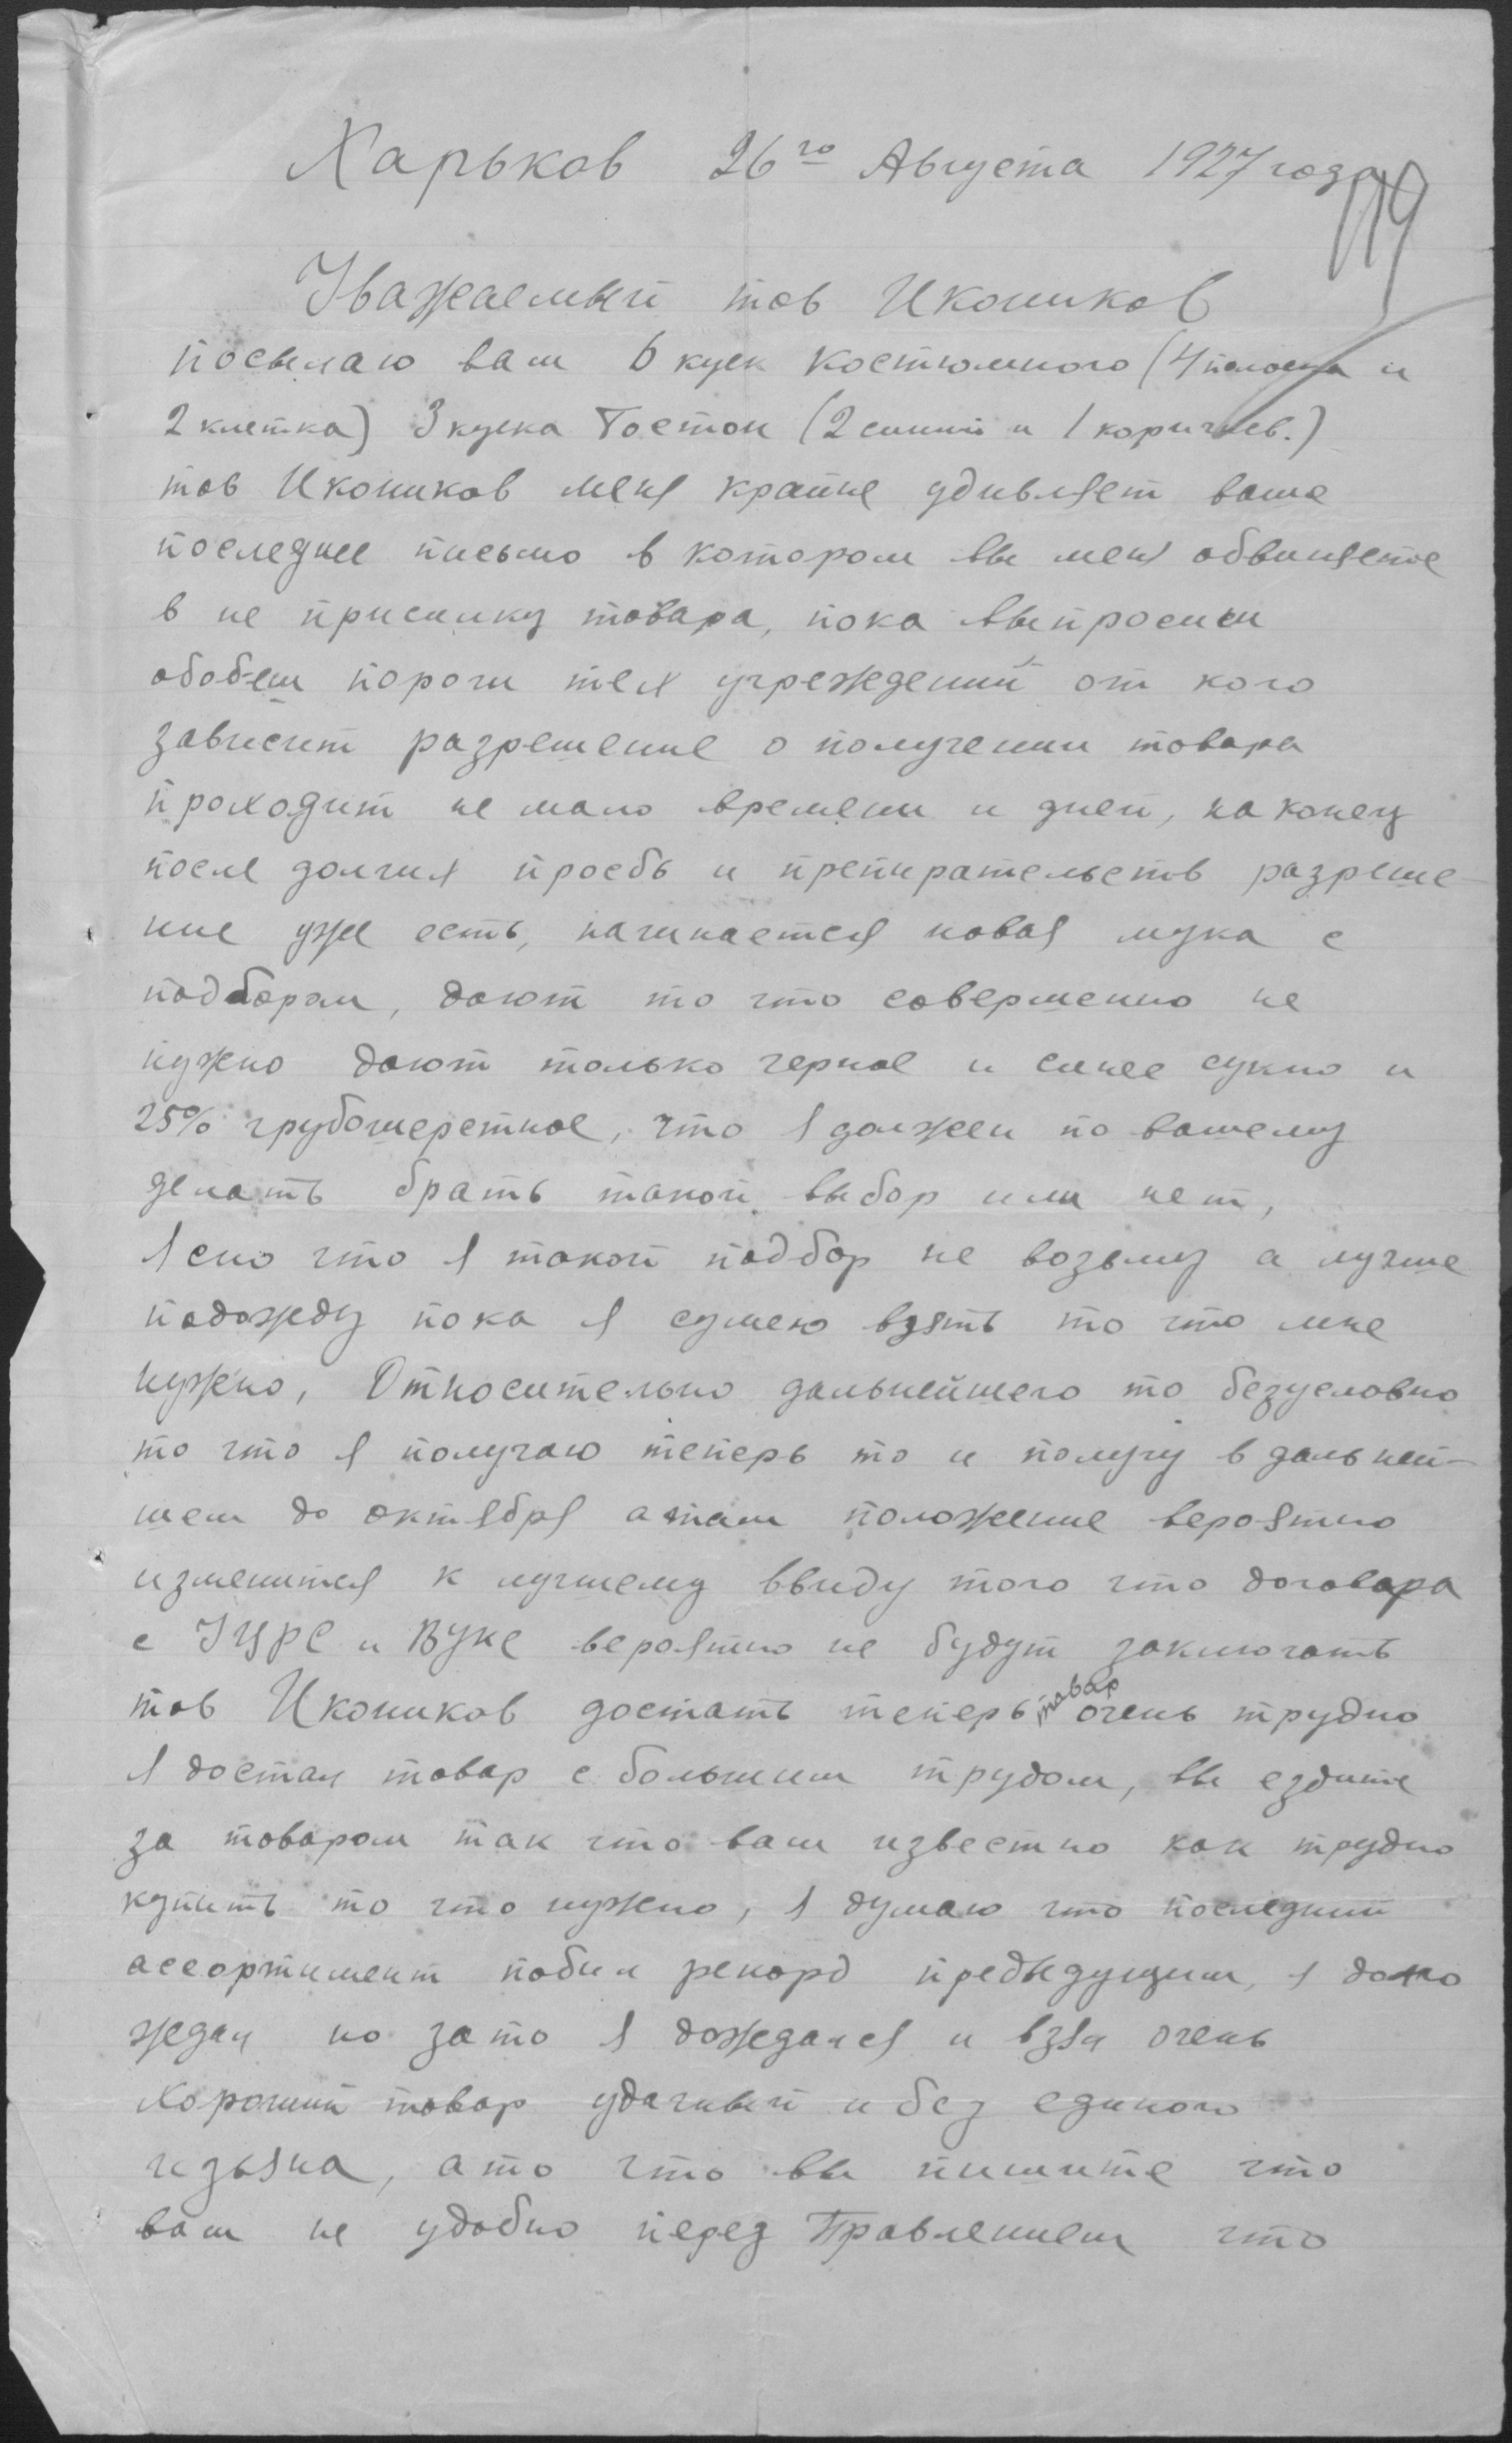 Харьков 26го Августа 1927 года
119
Уважаемый тов Икоников
посылаю вам 6 куск костюмного (4 полоска и
2 клетка) 3 куска Бостон (2 синий и 1 коричнев.)
тов Икоников меня крайне удивляет ваше
последнее письмо в котором вы меня обвиняете
в не присылку товара, пока выпросиш
обобъеш пороги тех учреждений от кого
зависит разрешение о получении товара
проходит не мало времени и дней, на конец
после долгих просьб и препирательств разреше-
ние уже есть, начинается новая мука с
подбором, дают то что совершенно не
нужно дают только черное и синее сукно и
25% грубошерстное, что я должен по вашему
делать брать такой выбор или нет,
Ясно что я такой подбор не возьму а лучше
подожду пока я сумею взять то что мне
нужно, Относительно дальнейшего то безусловно
то что я получаю теперь то и получу в дальней-
шем до октября а там положение вероятно
изменится к лучшему ввиду того что договора
с УЦРС и ВУКС вероятно не будут заключать
тов Икоников достать теперь товар очень трудно
я достал товар с большим трудом, вы ездите
за товаром так что вам известно как трудно
купить то что нужно, я думаю что последний
ассортимент побил рекорд предыдущим, я долго
ждал но за то я дождался и взял очень
хороший товар удачный и без единого
изъяна, а то что вы пишите что
вам не удобно перед Правлением что